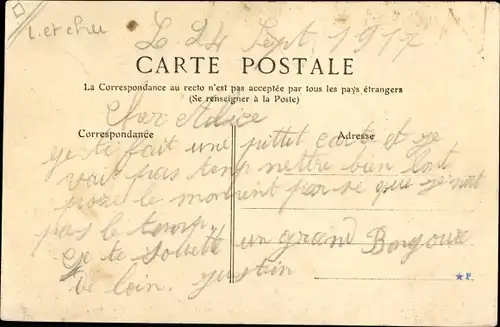 L et cher
L 24 Sept 1917
CARTE POSTALE
La Correspondance au recto n'est pas acceptée par tous les pays étrangers
(Se renseigner à la Poste)
Cher Adice
Correspondance
Adresse
ge te fait une puttet carte et ge
vait pas temp mettre bien lout
pour le moment parse que ge nat
pas le temp,
ge te soette un grand Bongour
de loin. justin
★ P.